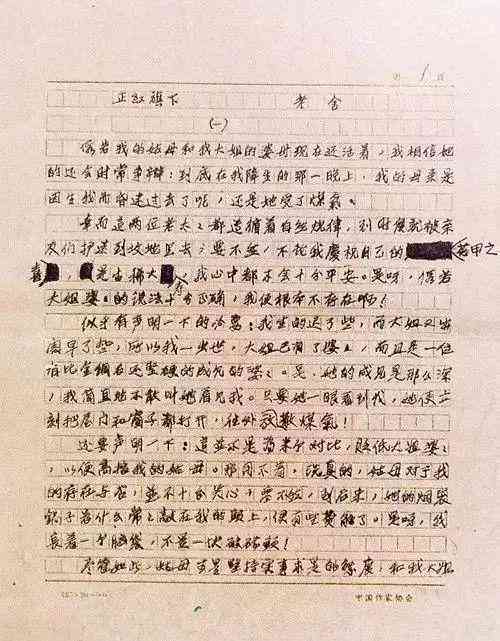 第 1 页
正红旗下 老舍
(一)
假若我的姑母和我大姐的婆母现在还活着,我相信她
们还会时常争辩:到底在我降生的那一晚上,我的母亲是
因生我而昏迷过去了呢,还是她受了煤气。
幸而这两位老太太都遵循着自然规律,到时候就被亲
友们护送到坟地里去;要不然,不论我庆祝自己的花甲之
喜,还是古稀大寿,我心中都不会十分平安。是呀,假若
大姐婆婆的说法十分正确,我便根本不存在啊!
似乎有声明一下的必要:我生的迟了些,而大姐又出
阁早了些,所以我一出世,大姐已有了婆婆,而且是一位
有比金刚石还坚硬的成见的婆婆。是,她的成见是那么深,
我简直地不敢叫她看见我。只要她一眼看到我,她便立
刻把屋门和窗子都打开,往外散煤气!
还要声明一下:这并不是为来个对比,贬低大姐婆婆
,以便高抬我的姑母。那用不着。说真的,姑母对于我
的存在与否,并不十分关心;要不然,到后来,她的烟袋
锅子为什么常常敲在我的头上,便有些费解了。是呀,我
长着一个脑袋,不是一块破砖头!
尽管如此,姑母可是坚持实事求是的态度,和我大姐
中国作家协会